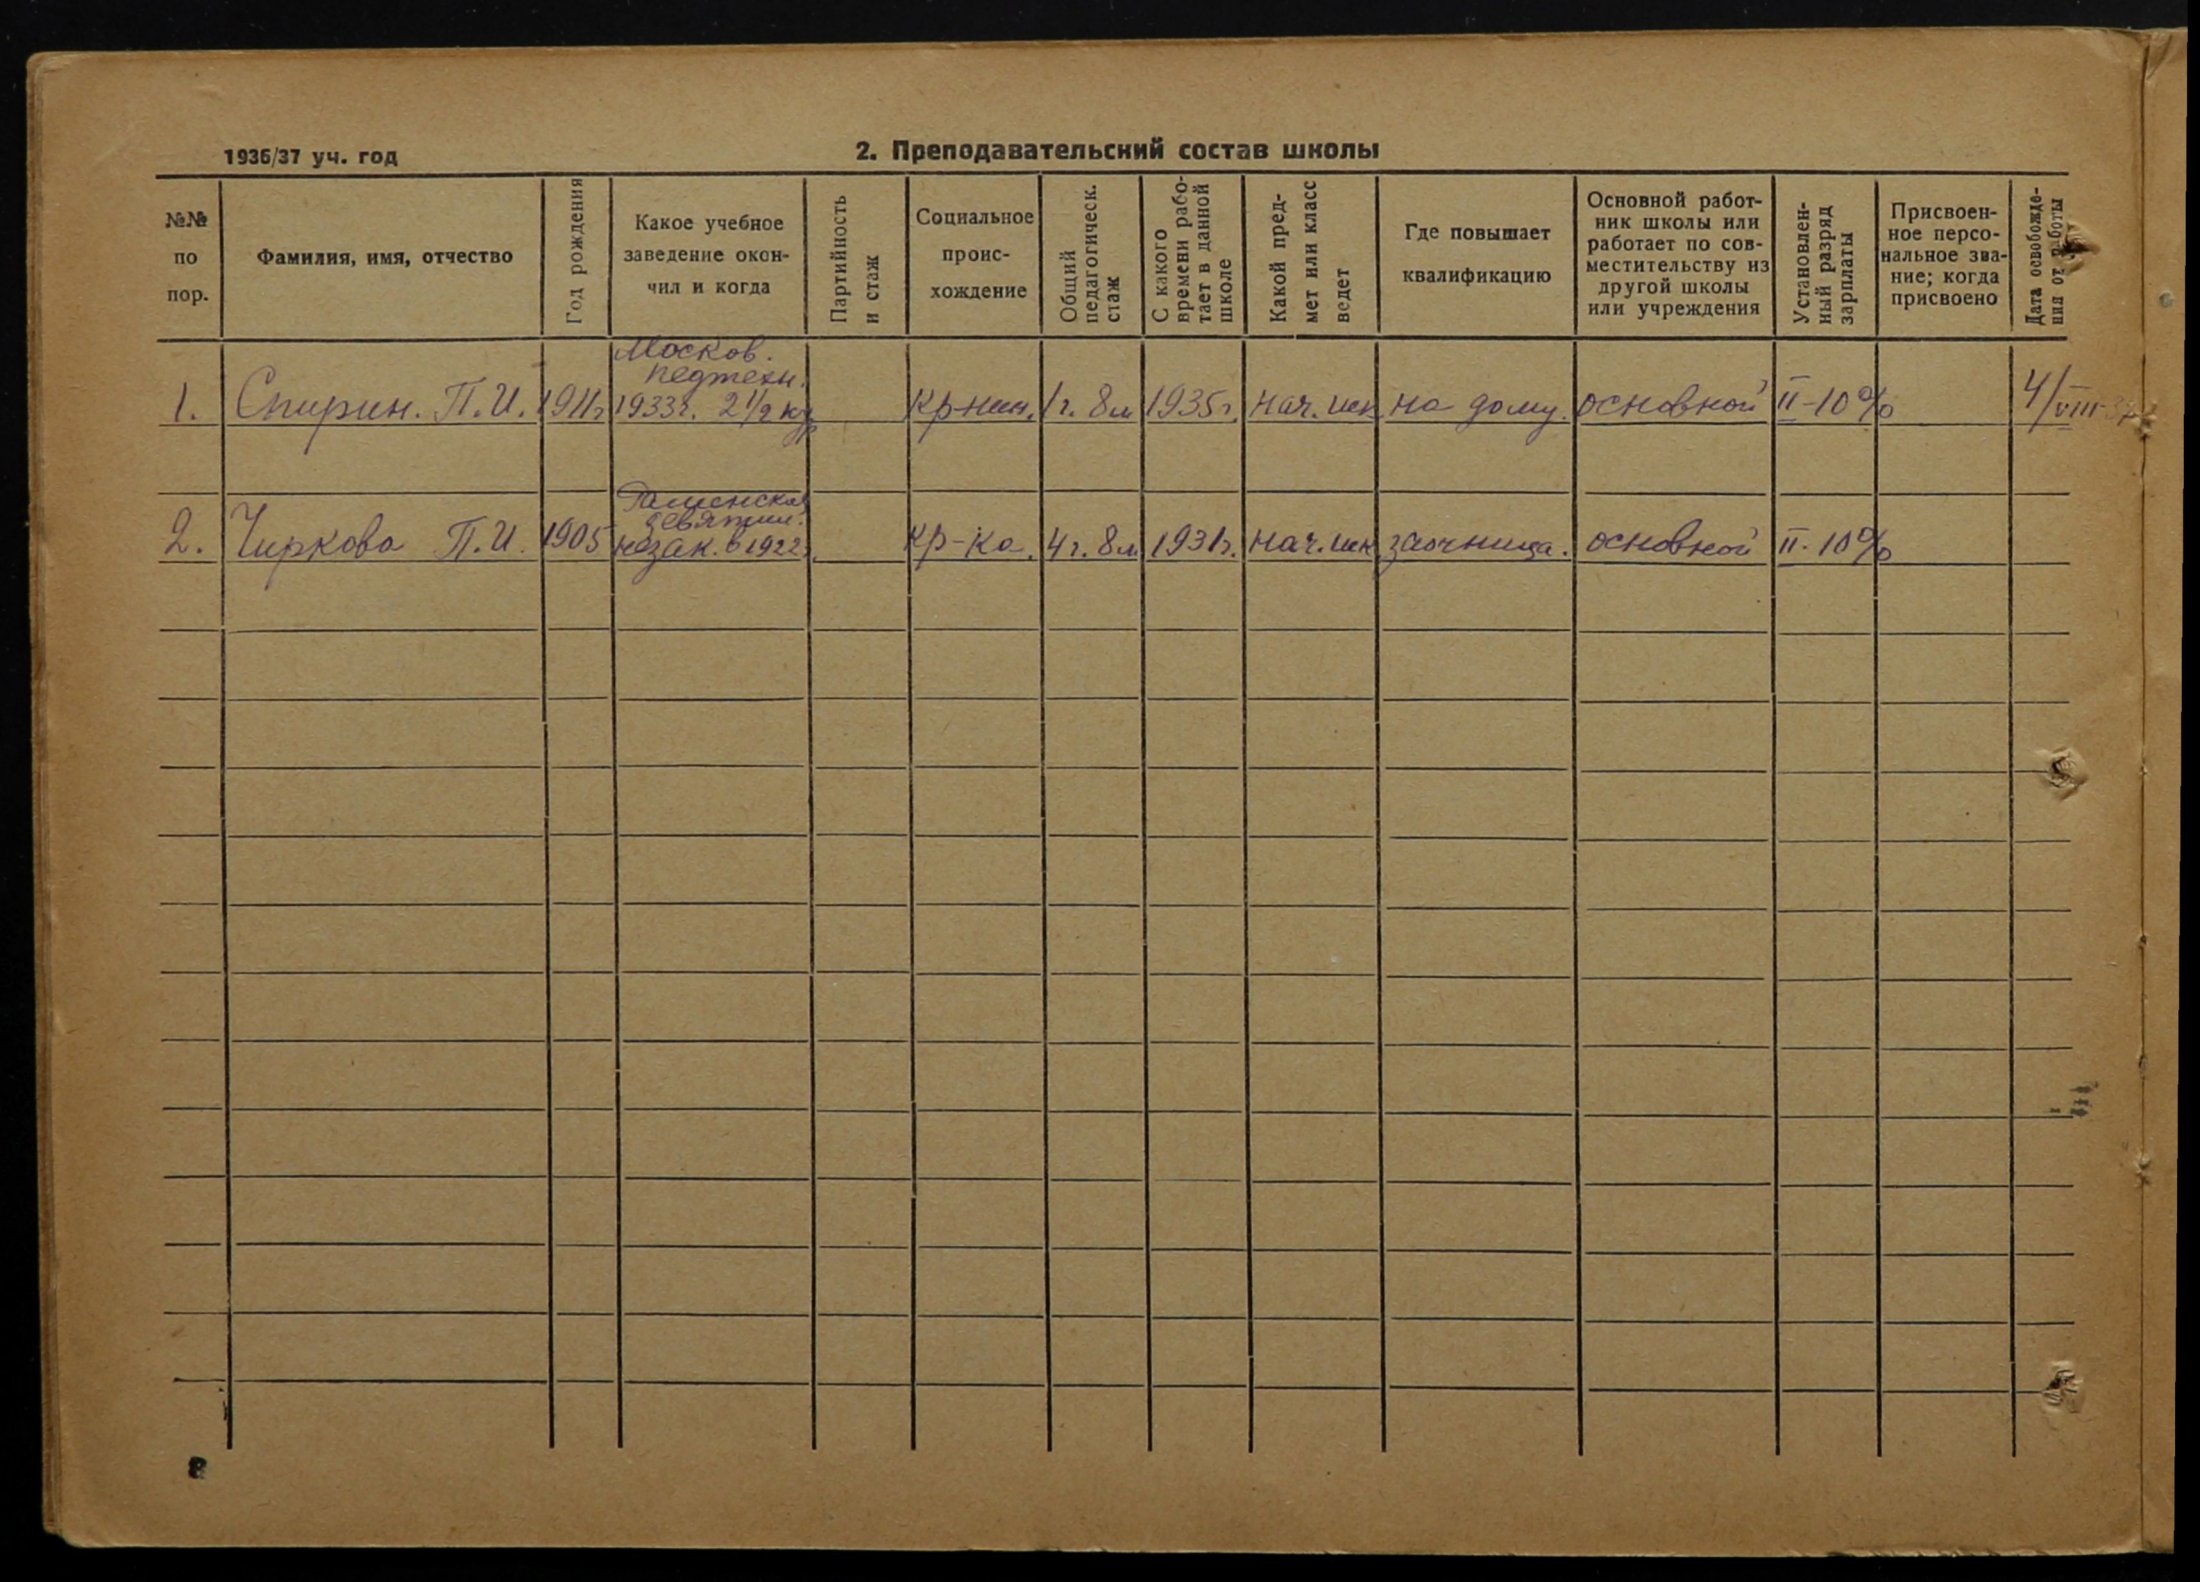 1936/37 уч. год
2. Преподавательский состав школы
№№ по пор.
Фамилия, имя, отчество
Год рождения
Какое учебное заведение окон-
чил и когда
Партийность и стаж
Социальное проис-
хождение
Общий педагогическ. стаж
С какого времени рабо-
тает в данной школе
Какой пред-
мет или класс ведет
Где повышает квалификацию
Основной работ-
ник школы или работает по сов-
местительству из другой школы или учреждения
Установлен-
ный разряд зарплаты
Присвоен-
ное персо-
нальное зва-
ние; когда присвоено
Дата освобожде-
ния от работы
Москов.
педтехн.
1. Спирин. П.И. 1911г 1933г. 2 1/2 кур кр-нин. 1г. 8м 1935г. нач. шк на дому. основной II-10% 4/VIII-37
девятил.
2. Чиркова П.И. 1905 незак. в 1922г. кр-ка. 4г. 8м 1931г. нач. шк заочница. основной II-10%
8